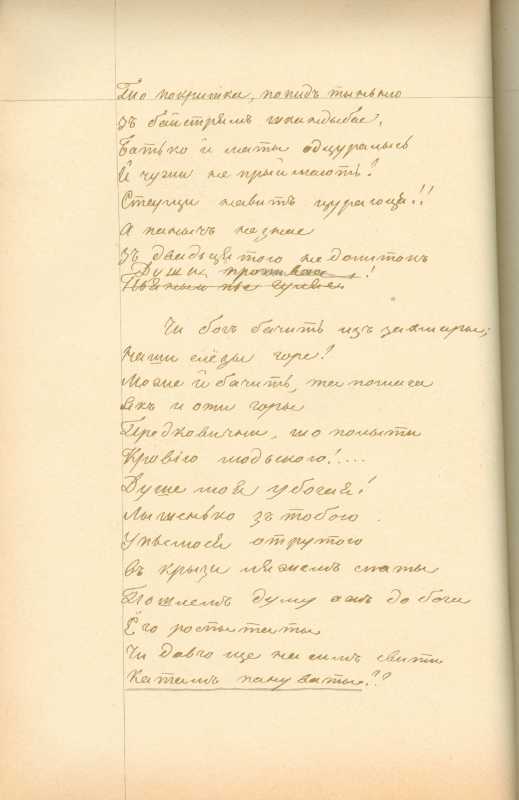 То покритка, попидъ тыньню
зъ байстрямъ шкандыбае,
Батько й маты одцуралысь
Й чужи не прыймаютъ!
Старци навитъ цураюця!!
А панычъ не знае
Зъ двадьцятою недолитокъ
Душы пропивае!
Чи богъ бачить изъ за хмары,
Наши слёзы горе?
Може й бачить, та помага
Якъ и оти горы
Предковични, що полыти
Кровію людською!....
Душе моя убогая!
Лышенько зъ тобою.
Упьемося отрутою
въ крызи ляжемъ спаты
Пошлемъ думу ажъ до бога
Ёго роспытаты
Чи довго ще на симъ свити
Катамъ пануваты??